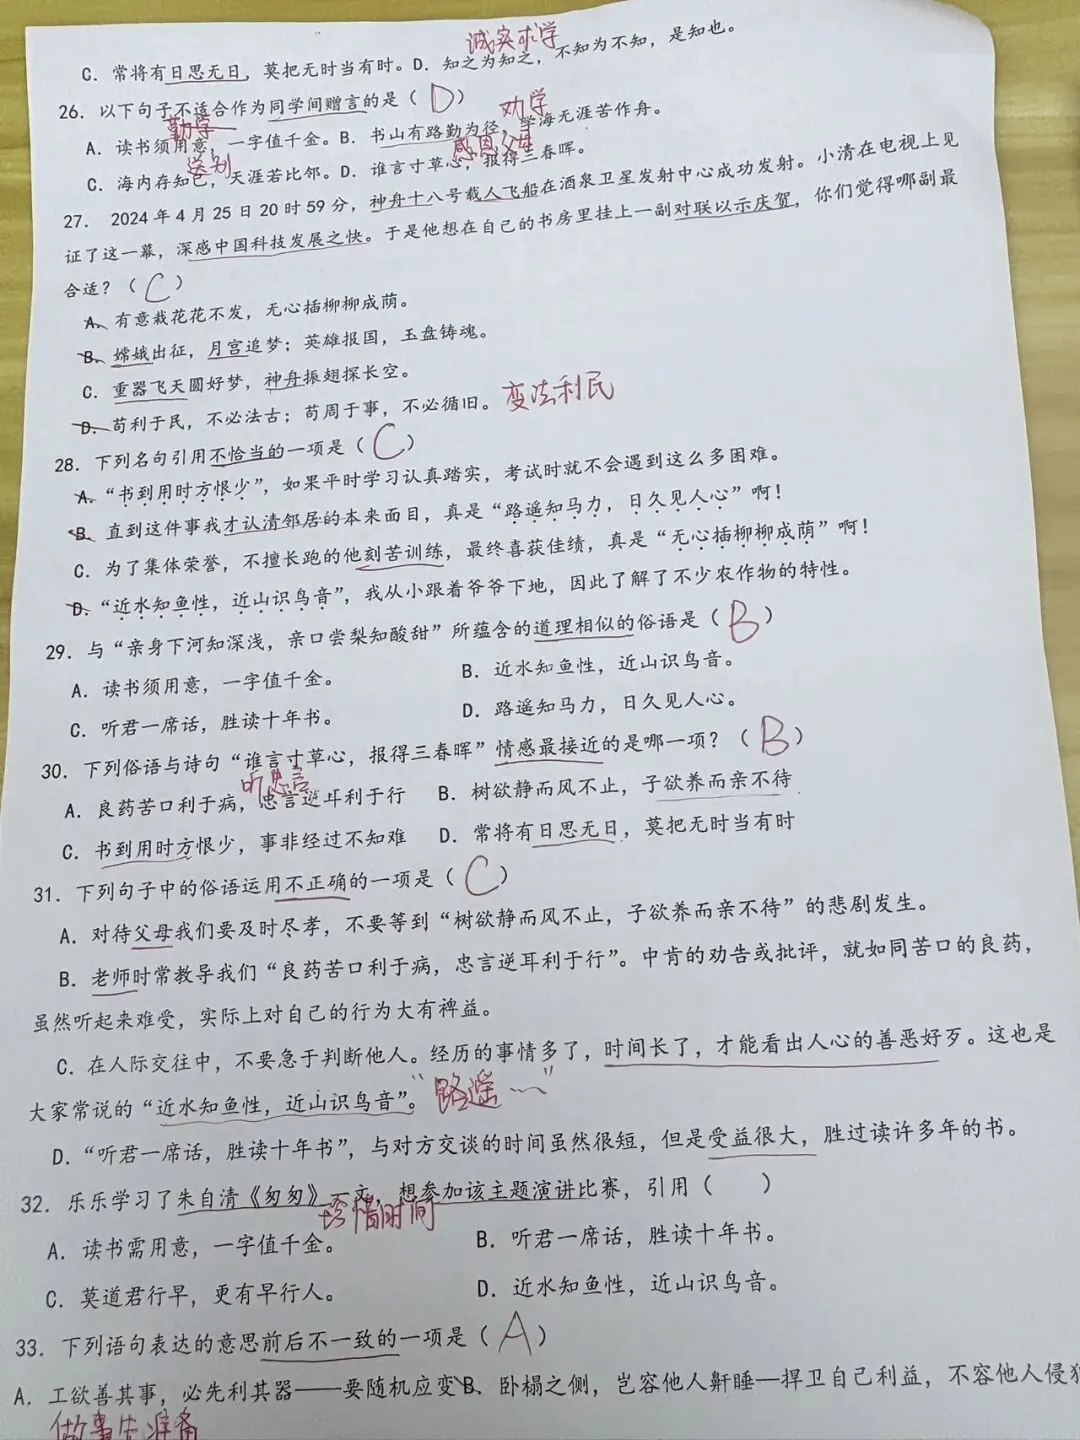 诚实求学
C. 常将有日思无日，莫把无时当有时。D. 知之为知之，不知为不知，是知也。
26. 以下句子不适合作为同学间赠言的是（ D ）
勤学 劝学
A. 读书须用意，一字值千金。B. 书山有路勤为径，学海无涯苦作舟。
送别 感恩父母
C. 海内存知己，天涯若比邻。D. 谁言寸草心，报得三春晖。
27. 2024年4月25日20时59分，神舟十八号载人飞船在酒泉卫星发射中心成功发射。小清在电视上见
证了这一幕，深感中国科技发展之快。于是他想在自己的书房里挂上一副对联以示庆贺，你们觉得哪副最
合适？（ C ）
A. 有意栽花花不发，无心插柳柳成荫。
B. 嫦娥出征，月宫追梦；英雄报国，玉盘铸魂。
C. 重器飞天圆好梦，神舟振翅探长空。
D. 苟利于民，不必法古；苟周于事，不必循旧。变法利民
28. 下列名句引用不恰当的一项是（ C ）
A. “书到用时方恨少”，如果平时学习认真踏实，考试时就不会遇到这么多困难。
B. 直到这件事我才认清邻居的本来面目，真是“路遥知马力，日久见人心”啊！
C. 为了集体荣誉，不擅长跑的他刻苦训练，最终喜获佳绩，真是“无心插柳柳成荫”啊！
D. “近水知鱼性，近山识鸟音”，我从小跟着爷爷下地，因此了解了不少农作物的特性。
29. 与“亲身下河知深浅，亲口尝梨知酸甜”所蕴含的道理相似的俗语是（ B ）
A. 读书须用意，一字值千金。 B. 近水知鱼性，近山识鸟音。
C. 听君一席话，胜读十年书。 D. 路遥知马力，日久见人心。
30. 下列俗语与诗句“谁言寸草心，报得三春晖”情感最接近的是哪一项？（ B ）
听忠言
A. 良药苦口利于病，忠言逆耳利于行 B. 树欲静而风不止，子欲养而亲不待
C. 书到用时方恨少，事非经过不知难 D. 常将有日思无日，莫把无时当有时
31. 下列句子中的俗语运用不正确的一项是（ C ）
A. 对待父母我们要及时尽孝，不要等到“树欲静而风不止，子欲养而亲不待”的悲剧发生。
B. 老师时常教导我们“良药苦口利于病，忠言逆耳利于行”。中肯的劝告或批评，就如同苦口的良药，
虽然听起来难受，实际上对自己的行为大有裨益。
C. 在人际交往中，不要急于判断他人。经历的事情多了，时间长了，才能看出人心的善恶好歹。这也是
大家常说的“近水知鱼性，近山识鸟音”。“路遥……”
D. “听君一席话，胜读十年书”，与对方交谈的时间虽然很短，但是受益很大，胜过读许多年的书。
32. 乐乐学习了朱自清《匆匆》一文，想参加该主题演讲比赛，引用（ ）
珍惜时间
A. 读书需用意，一字值千金。 B. 听君一席话，胜读十年书。
C. 莫道君行早，更有早行人。 D. 近水知鱼性，近山识鸟音。
33. 下列语句表达的意思前后不一致的一项是（ A ）
A. 工欲善其事，必先利其器——要随机应变 B. 卧榻之侧，岂容他人鼾睡—捍卫自己利益，不容他人侵犯
做事先准备